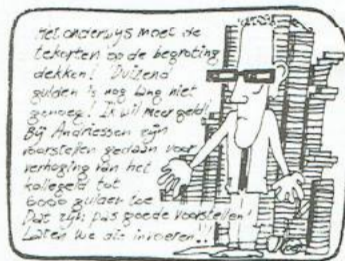 Het onderwijs moet de
tekorten op de begroting
dekken! Duizend
gulden is nog lang niet
genoeg! Ik wil meer geld!
Bij Andriessen zijn
voorstellen gedaan voor
verhoging van het
kollegeld tot
6000 gulden toe
Dat zijn pas goede voorstellen!
Laten we die invoeren!!